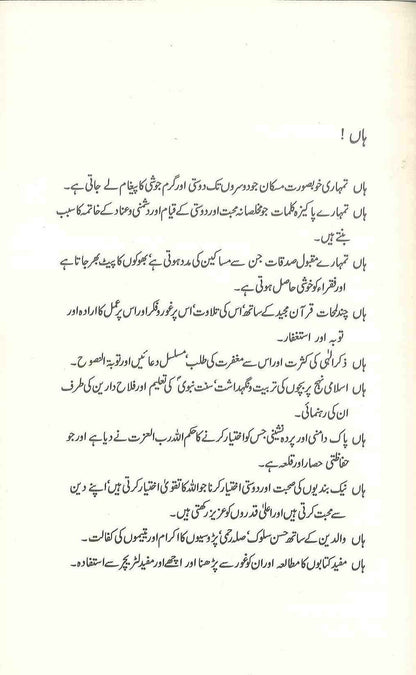 ہاں !
ہاں تمہاری خوبصورت مسکان جو دوسروں تک دوستی اور گرم جوشی کا پیغام لے جاتی ہے۔
ہاں تمہارے پاکیزہ کلمات جو مخلصانہ محبت اور دوستی کے قیام اور دشمنی وعناد کے خاتمہ کا سبب
بنتے ہیں۔
ہاں تمہارے مقبول صدقات جن سے مساکین کی مدد ہوتی ہے‘ بھوکوں کا پیٹ بھر جاتا ہے
اور فقراء کو خوشی حاصل ہوتی ہے۔
ہاں چند لمحات قرآن مجید کے ساتھ‘ اس کی تلاوت‘ اس پر غور و فکر اور اس پر عمل کا ارادہ اور
توبہ اور استغفار۔
ہاں ذکر الٰہی کی کثرت اور اس سے مغفرت کی طلب‘ مسلسل دعائیں اور توبۃ النصوح۔
ہاں اسلامی نہج پر بچوں کی تربیت و نگہداشت‘ سنت نبویؐ کی تعلیم اور فلاح دارین کی طرف
ان کی رہنمائی۔
ہاں پاک دامنی اور پردہ نشینی جس کو اختیار کرنے کا حکم اللہ رب العزت نے دیا ہے اور جو
حفاظتی حصار اور قلعہ ہے۔
ہاں نیک بندیوں کی صحبت اور دوستی اختیار کرنا جو اللہ کا تقویٰ اختیار کرتی ہیں‘ اپنے دین
سے محبت کرتی ہیں اور اعلیٰ قدروں کو عزیز رکھتی ہیں۔
ہاں والدین کے ساتھ حسن سلوک‘ صلہ رحمی‘ پڑوسیوں کا اکرام اور یتیموں کی کفالت۔
ہاں مفید کتابوں کا مطالعہ اور ان کو غور سے پڑھنا اور اچھے اور مفید لٹریچر سے استفادہ۔